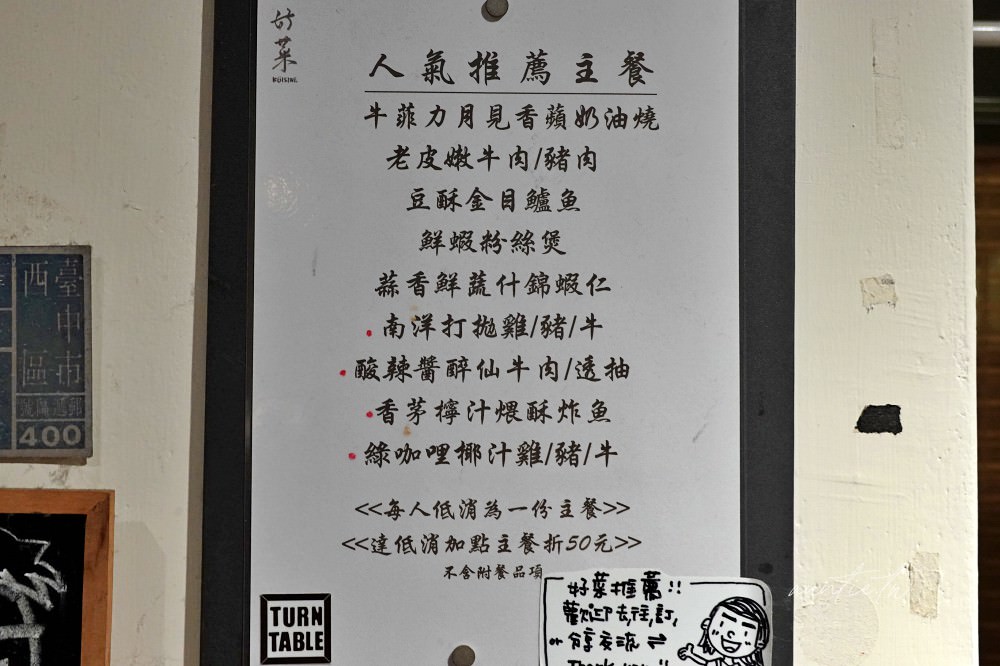 好菜
KUISINE
人氣推薦主餐
牛菲力月見香蘋奶油燒
老皮嫩牛肉/豬肉
豆酥金目鱸魚
鮮蝦粉絲煲
蒜香鮮蔬什錦蝦仁
南洋打拋雞/豬/牛
酸辣醬醉仙牛肉/透抽
香茅檸汁煨酥炸魚
綠咖哩椰汁雞/豬/牛
<<每人低消為一份主餐>>
<<達低消加點主餐折50元>>
不含附餐品項
TURN
TABLE
好菜推薦!!
歡迎去往訂,
or 分享交流 ⇌
臺中市
西區
郵遞區號
400